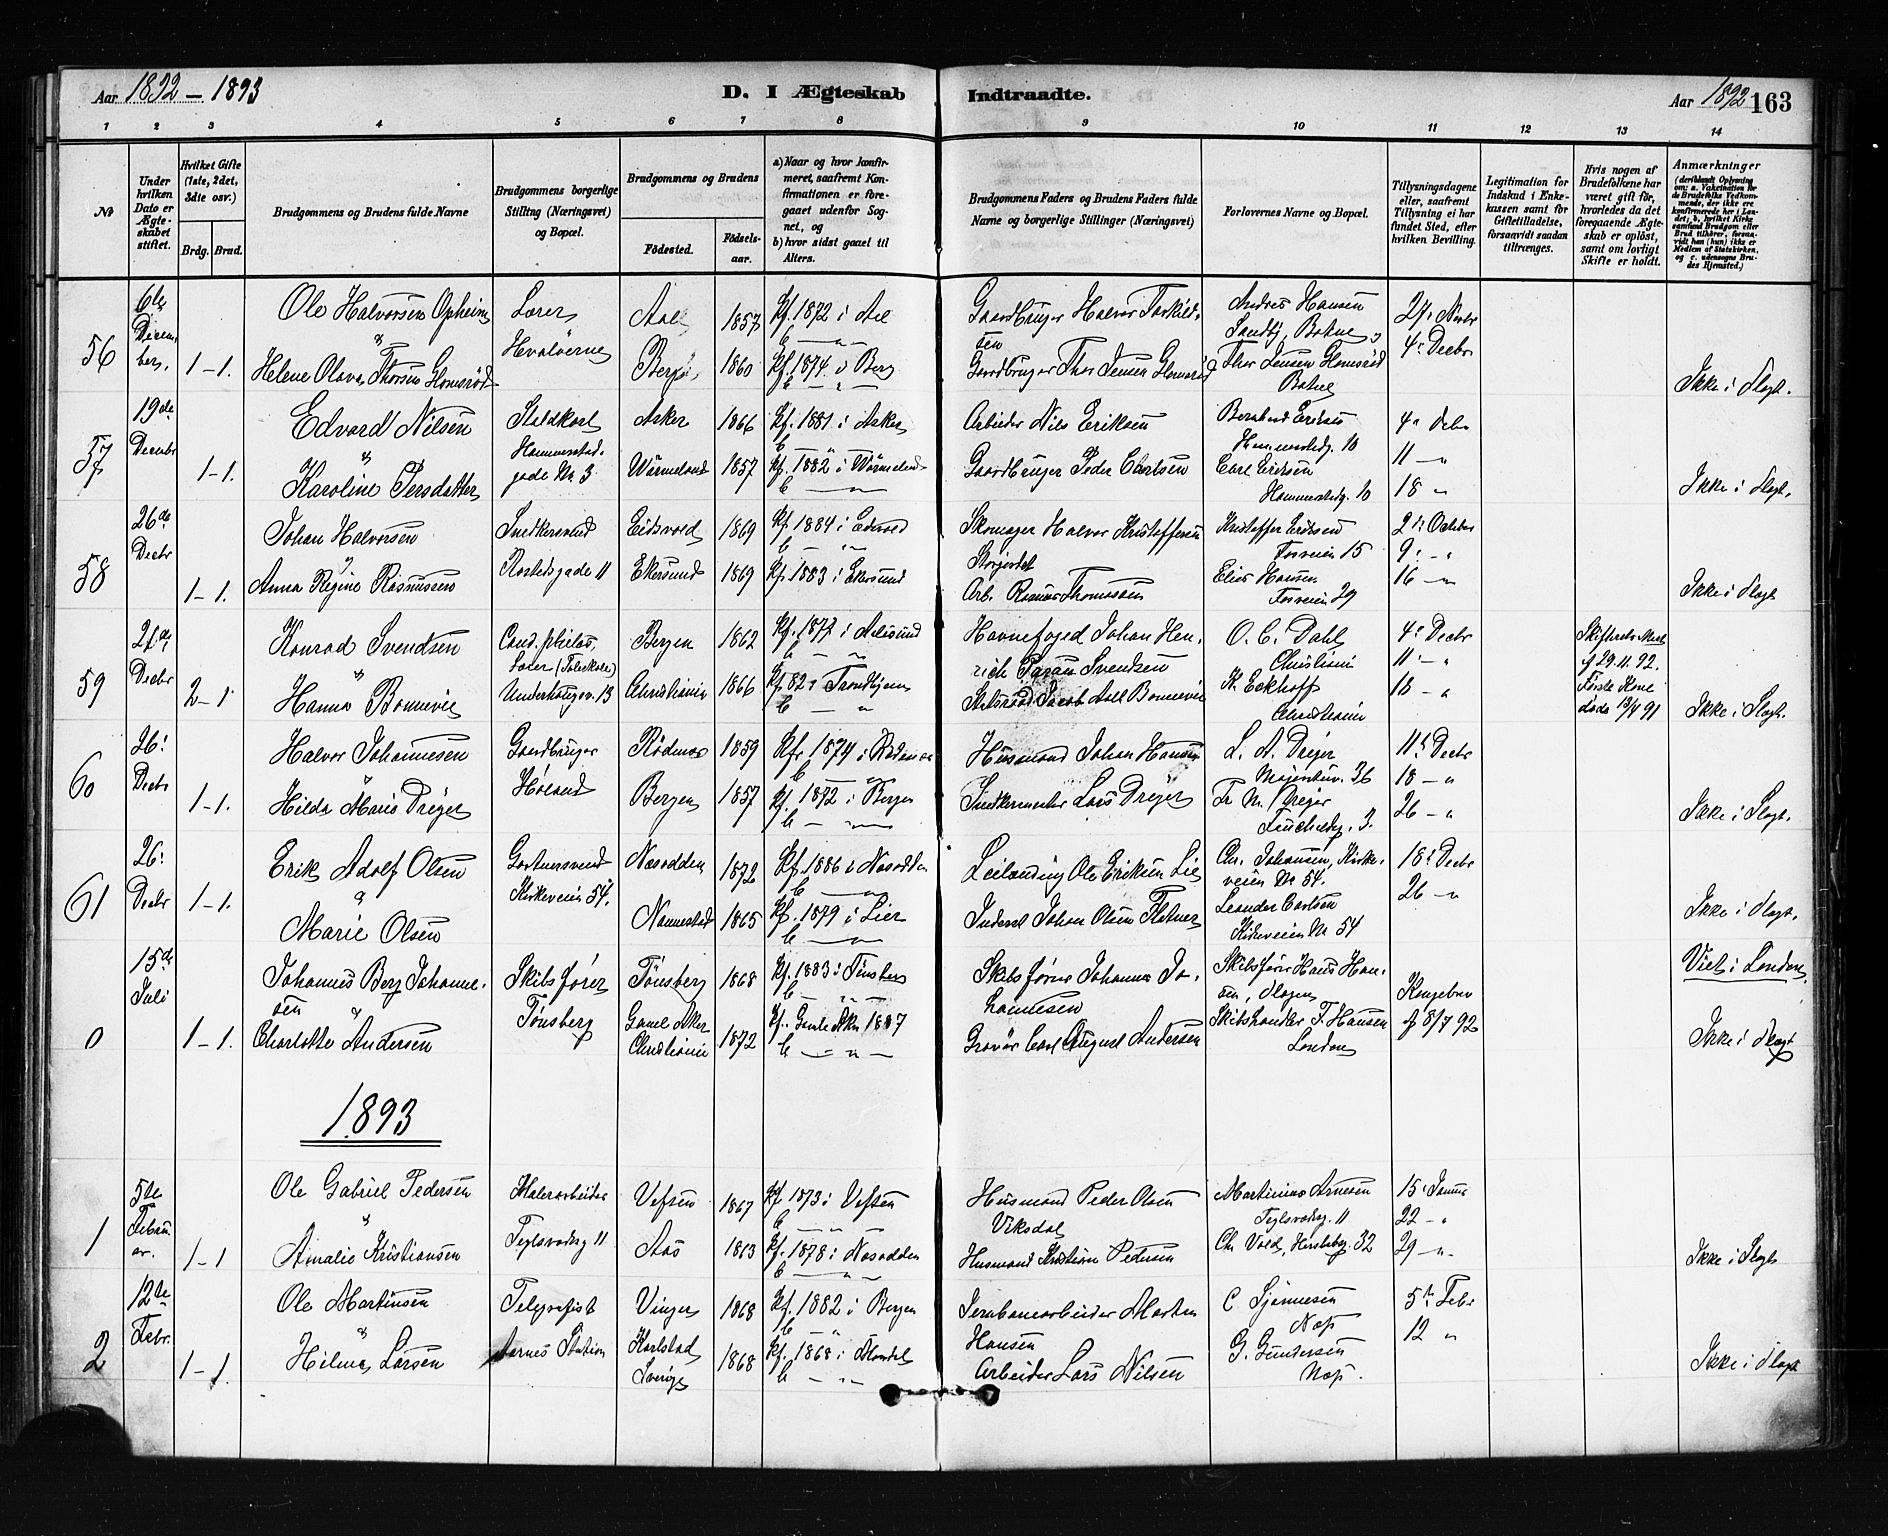 Aar 1892 – 1893
D. I Ægteskab Indtraadte.
Aar 1892 163
1 2 3 4 5 6 7 8 9 10 11 12 13 14
№
Under hvilken Dato er Ægteskabet stiftet.
Hvilket Gifte (1ste, 2det, 3die osv.)
Brdg. Brud.
Brudgommens og Brudens fulde Navne
Brudgommens borgerlige Stilling (Næringsvei) og Bopæl.
Brudgommens og Brudens
Födested. Födsels-aar.
a) Naar og hvor konfirmeret, saafremt Konfirmationen er foregaaet udenfor Sognet, og
b) hvor sidst gaaet til Alters.
Brudgommens Faders og Brudens Faders fulde Navne og borgerlige Stillinger (Næringsvei)
Forlovernes Navne og Bopæl.
Tillysningsdagene eller, saafremt Tillysning ei har fundet Sted, efter hvilken Bevilling.
Legitimation for Indskud i Enkekassen samt for Giftetilladelse, forsaavidt saadan tiltrænges.
Hvis nogen af Brudefolkene har været gift för, hvorledes da det foregaaende Ægteskab er oplöst, samt om lovligt Skifte er holdt.
Anmærkninger
56 6te Decem-ber. 1–1.
Ole Halvorsen Opheim
Helene Olava Thorsen Glomsrød
Lærer
Hvaløerne
Aal 1857 Kf. 1872 i Aal
Berg 1860 Kf. 1874 i Berg
Gaardbruger Halvor Torkildsen
Gaardbruger Thor Jensen Glomsrød
Andres Hansen
Thor Jensen Glomsrød
27. Novbr
4. Decbr
Ikke i Slægt.
57 19de Decembr 1–1.
Edvard Nilsen
Karoline Persdatter
Staldkarl
Hammerstadgade № 3
Asker 1866 Kf. 1881 i Asker
Wärmeland 1857 Kf. 1882 i Wärmeland
Arbeider Nils Eriksen
Gaardbruger Peder Carlsen
Bernhard Eriksen
Hammerstadg. 10
Carl Eriksen
Hammerstadg. 10
4. Debr
11 – "
18 "
Ikke i Slægt.
58 26de Decbr 1–1.
Johan Halvorsen
Anna Regine Rasmussen
Snedkersvend
Rostedsgade 11
Eidsvold 1869 Kf 1884 i Eidsvold
Ekersund 1869 Kf. 1883 i Ekersund
Skomager Halvor Kristoffersen
Arb. Rasmus Thomassen
Kristoffer Eriksen
Fosveien 15
Elias Hansen
Fosveien 29
2den Octobr
9. – "
16 – "
Ikke i Slægt
59 27de Decbr 2–1
Konrad Svendsen
Hanna Bonnevie
Cand. philos,
Lærer (Folkskole)
Underhaugsv. 13
Bergen 1862 Kf. 1877 i Aalesund
Christiania 1866 Kf 82 i Trondhjem
Havnefoged Johan Henrich Svendsen
Statsraad Jacob Aall Bonnevie
O. C. Dahl
Christiania
K. Eckhoff
Christiania
4. Decbr
11. – "
18 – "
Skifterets Attest
af 29.11.92.
Første Kone
døde 13/4 91
Ikke i Slægt.
60 26. Decbr 1–1.
Halvor Johannesen
Hilda Marie Dreyer
Gaardbruger
Høland
Rødenæs 1859 Kf. 1874 i Rødenæs
Bergen 1857 Kf. 1872 i Bergen
Husmand Johan Hansen
Snedkermester Lars Dreyer
L. A. Dreyer
Majorstuv. 36
Fr. M. Dreyer
11te Decbr
18 – "
26 – "
Ikke i Slægt.
61 26. Decbr 1–1.
Erik Adolf Olsen
Marie Olsen
Gartnersvend
Kirkeveien 54.
Næsodden 1872 Kf. 1886 i Næsodden
Nannestad 1865 Kf. 1879 i Lier
Leilænding Ole Eriksen Lie
Inderst Johan Olsen Flotner
Chr. Johansen, Kirkeveien № 54.
Leander Carlsen
Kirkeveien № 54
18. Decbr
26 – "
Ikke i Slægt.
0 15de Juli 1–1.
Johannes Berg Johannesen
Charlotte Andersen
Skibsfører
Tønsberg
Tønsberg 1868 Kf. 1883 i Tønsberg
Gamle Aker Christiania 1872 Kf. Gamle Aker 1887
Skibsfører Johannes Johannesen
Gravør Carl August Andersen
Skibsfører Hans Hansen, Slagen
Skibshandler F. Hansen
London
Kongebrev
af 8/7 92
Viet i London.
Ikke i Slægt
1893
1 5te Februar. 1–1
Ole Gabriel Pedersen
Amalie Kristiansen
Malerarbeider
Teglverksg 11
Vefsen 1867 Kf 1873 i Vefsen
Aas 1863 Kf. 1878 i Næsodden
Husmand Peder Olsen
Viksdal
Husmand Kristian Pedersen
Martinius Arnesen
Teglverksg. 11
Chr Vold, Herslebsg. 32
15. Januar
22 – "
29 – "
Ikke i Slægt
2 12te Febr. 1–1.
Ole Martinsen
Hilma Larsen
Telegrafist
Aarnes Station
Vinger 1868 Kf. 1882 i Bergen
Karlstad Sverige 1868
Jernbanearbeider Morten Hansen
Arbeider Lars Nilsen
G. Gundersen
5te Febr
12 "
Ikke i Slægt